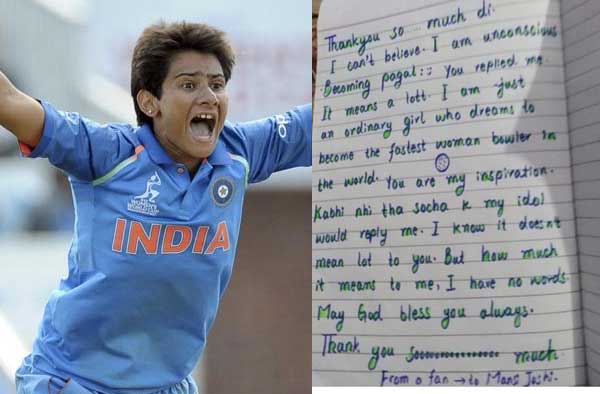 ICC
WOMEN'S
WORLD CUP
INDIA
oppo
Thankyou so much di.
I can't believe. I am unconscious
Becoming pagal:: You replied me.
It means a lott. I am just
an ordinary girl who dreams to
become the fastest woman bowler in
the world. You are my inspiration.
Kabhi nhi tha socha k my idol
would reply me. I know it doesn't
mean lot to you. But how much
it means to me, I have no words.
May God bless you always.
Thank you soooooooooooo much.
From a fan → to Mansi Joshi.